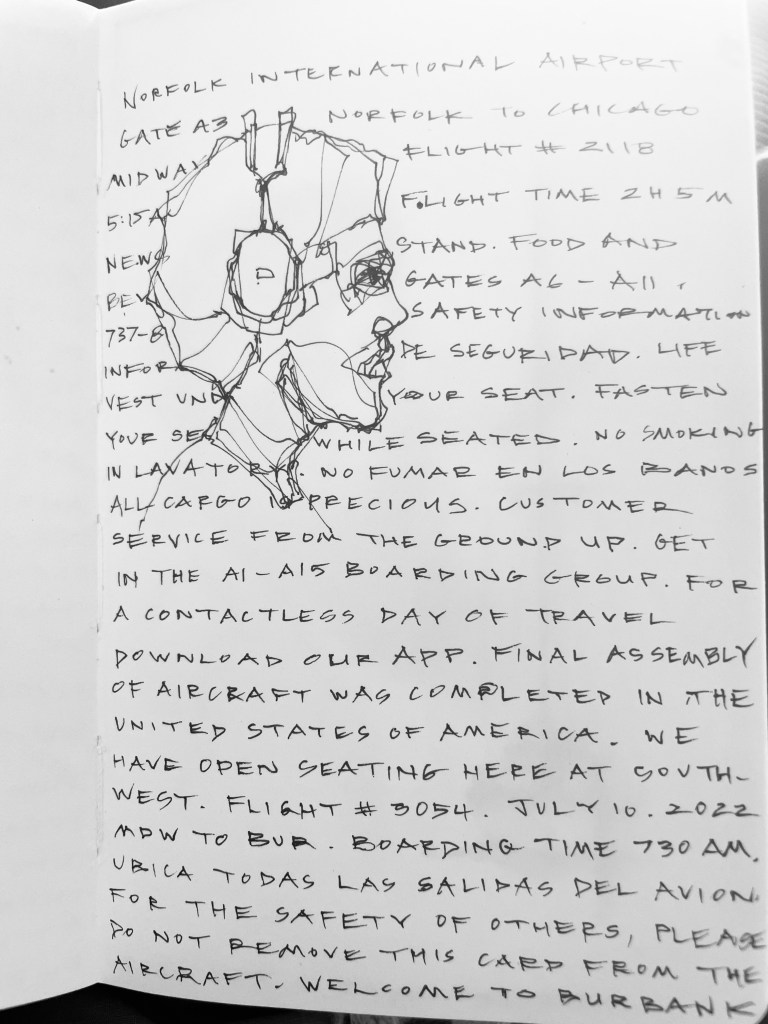 NORFOLK INTERNATIONAL AIRPORT
GATE A3 NORFOLK TO CHICAGO
MIDWAY FLIGHT # 2118
5:15A FLIGHT TIME 2H 5M
NEWS STAND. FOOD AND
BEV GATES A6 - A11.
737-8 SAFETY INFORMATION
INFOR DE SEGURIDAD. LIFE
VEST UND YOUR SEAT. FASTEN
YOUR SE WHILE SEATED. NO SMOKING
IN LAVATORY. NO FUMAR EN LOS BANOS
ALL CARGO IS PRECIOUS. CUSTOMER
SERVICE FROM THE GROUND UP. GET
IN THE A1-A15 BOARDING GROUP. FOR
A CONTACTLESS DAY OF TRAVEL
DOWNLOAD OUR APP. FINAL ASSEMBLY
OF AIRCRAFT WAS COMPLETED IN THE
UNITED STATES OF AMERICA. WE
HAVE OPEN SEATING HERE AT SOUTH-
WEST. FLIGHT # 3054. JULY 10. 2022
MDW TO BUR. BOARDING TIME 730 AM.
UBICA TODAS LAS SALIDAS DEL AVION.
FOR THE SAFETY OF OTHERS, PLEASE
DO NOT REMOVE THIS CARD FROM THE
AIRCRAFT. WELCOME TO BURBANK